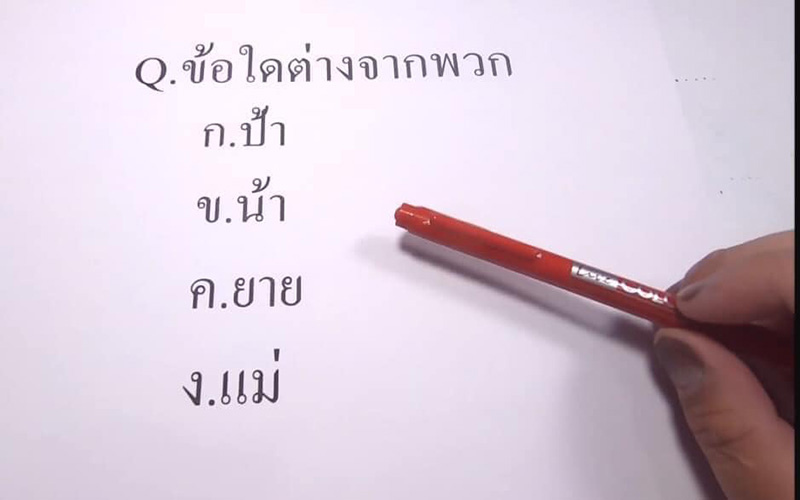 Q.ข้อใดต่างจากพวก
ก.ป้า
ข.น้า
ค.ยาย
ง.แม่